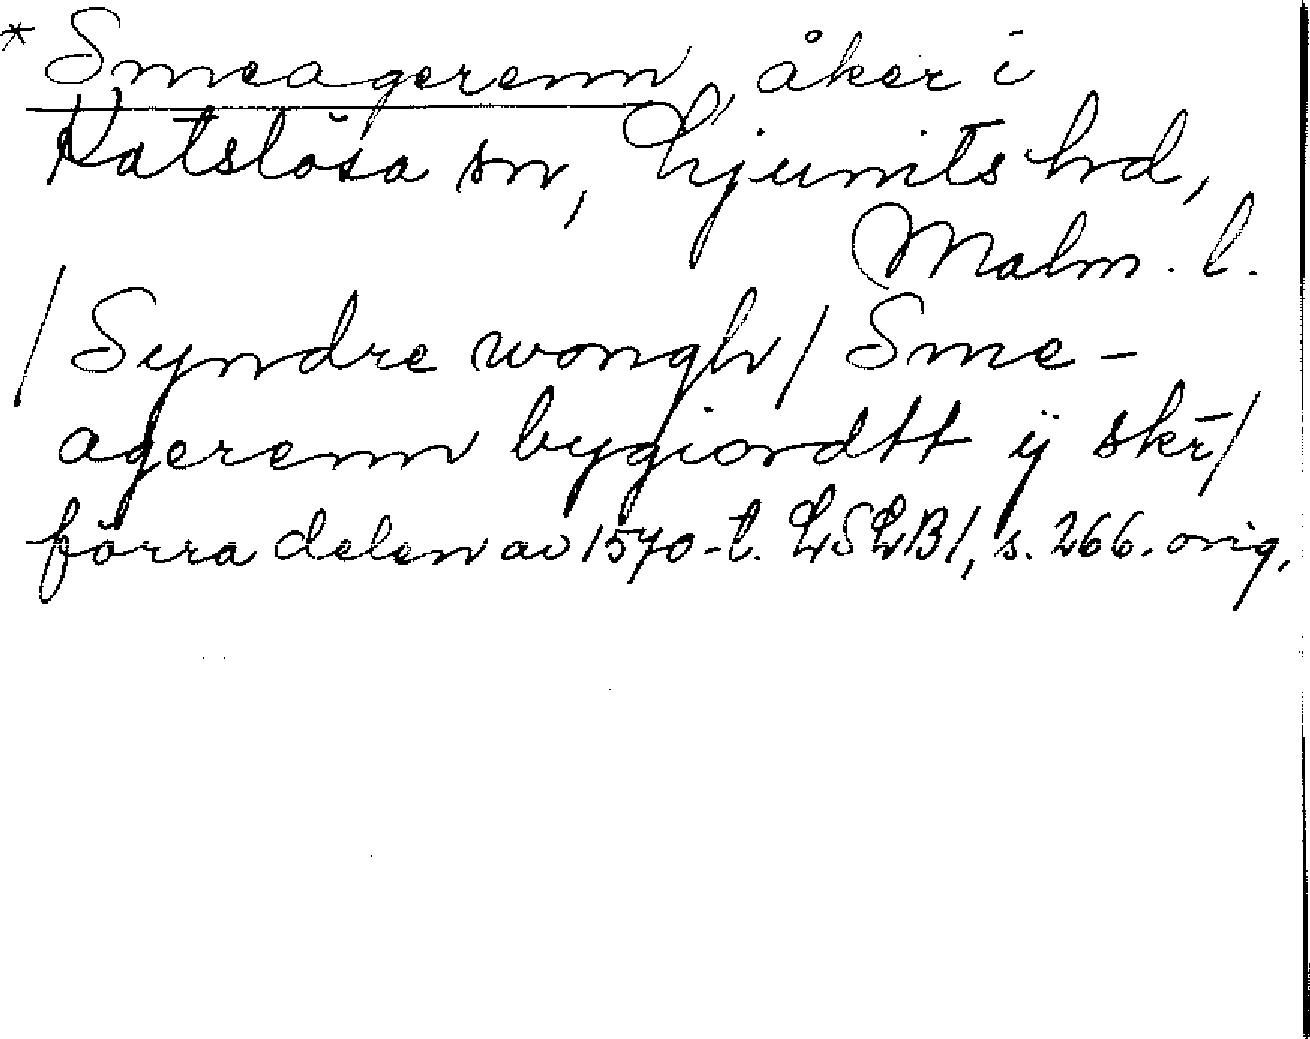 * Smeagerenn, åker i
Katslösa sn, Ljunits hd,
Malm. l.
/Syndre wongh/ Sme-
agerenn bygiordtt ÿ skr̄/
förra delen av 1570-t. LSLB1, s. 266. orig.